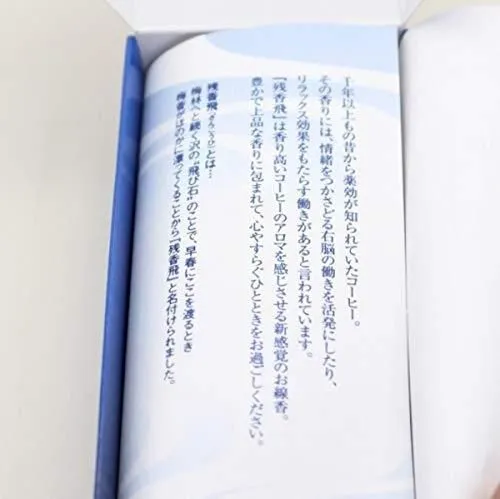 千年以上もの昔から薬効が知られていたコーヒー。
その香りには、情緒をつかさどる右脳の働きを活発にしたり、
リラックス効果をもたらす働きがあると言われています。
『残香飛』は香り高いコーヒーのアロマを感じさせる新感覚のお線香。
豊かで上品な香りに包まれて、心やすらぐひとときをお過ごしください。
残香飛（ざんこうひ）とは…
梅林へと続く沢の“飛び石”のことで、早春にここを渡るとき
梅香がほのかに漂ってくることから『残香飛』と名付けられました。